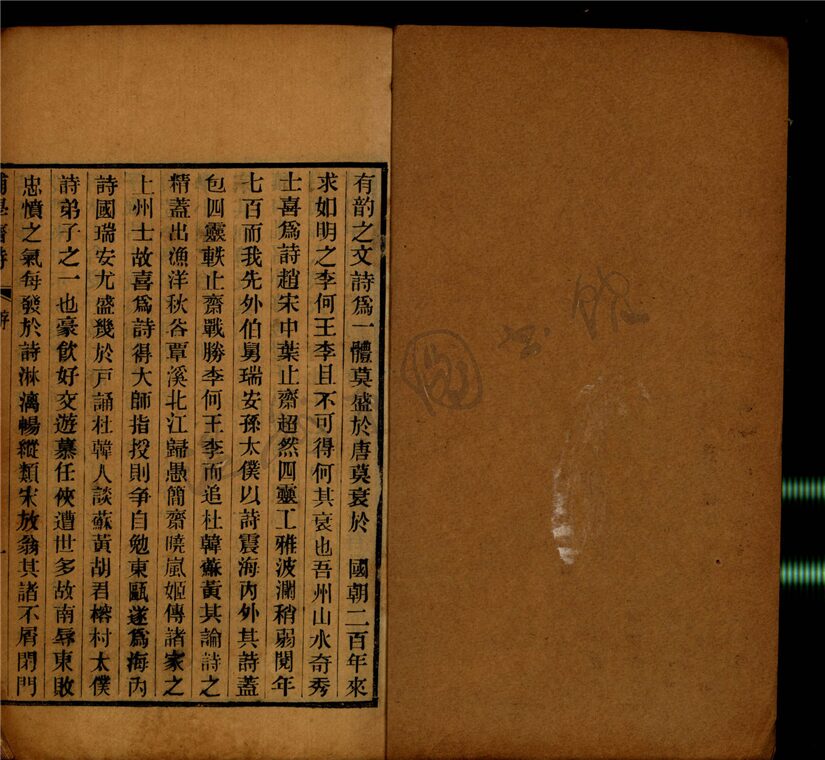 有韵之文詩爲一體莫盛於唐莫衰於 國朝二百年來
求如明之李何王李且不可得何其衰也吾州山水奇秀
士喜爲詩趙宋中葉止齋超然四靈工雅波瀾稍弱閱年
七百而我先外伯舅瑞安孫太僕以詩震海內外其詩蓋
包四靈軼止齋戰勝李何王李而追杜韓蘇黃其論詩之
精蓋出漁洋秋谷覃溪北江歸愚簡齋曉嵐姬傳諸家之
上州士故喜爲詩得大師指授則爭自勉東甌遂爲海內
詩國瑞安尤盛幾於戸誦杜韓人談蘇黃胡君榕村太僕
詩弟子之一也豪飲好交遊慕任俠遭世多故南辱東敗
忠憤之氣每發於詩淋漓暢縱類宋放翁其諸不屑閉門
齋詩
序
一